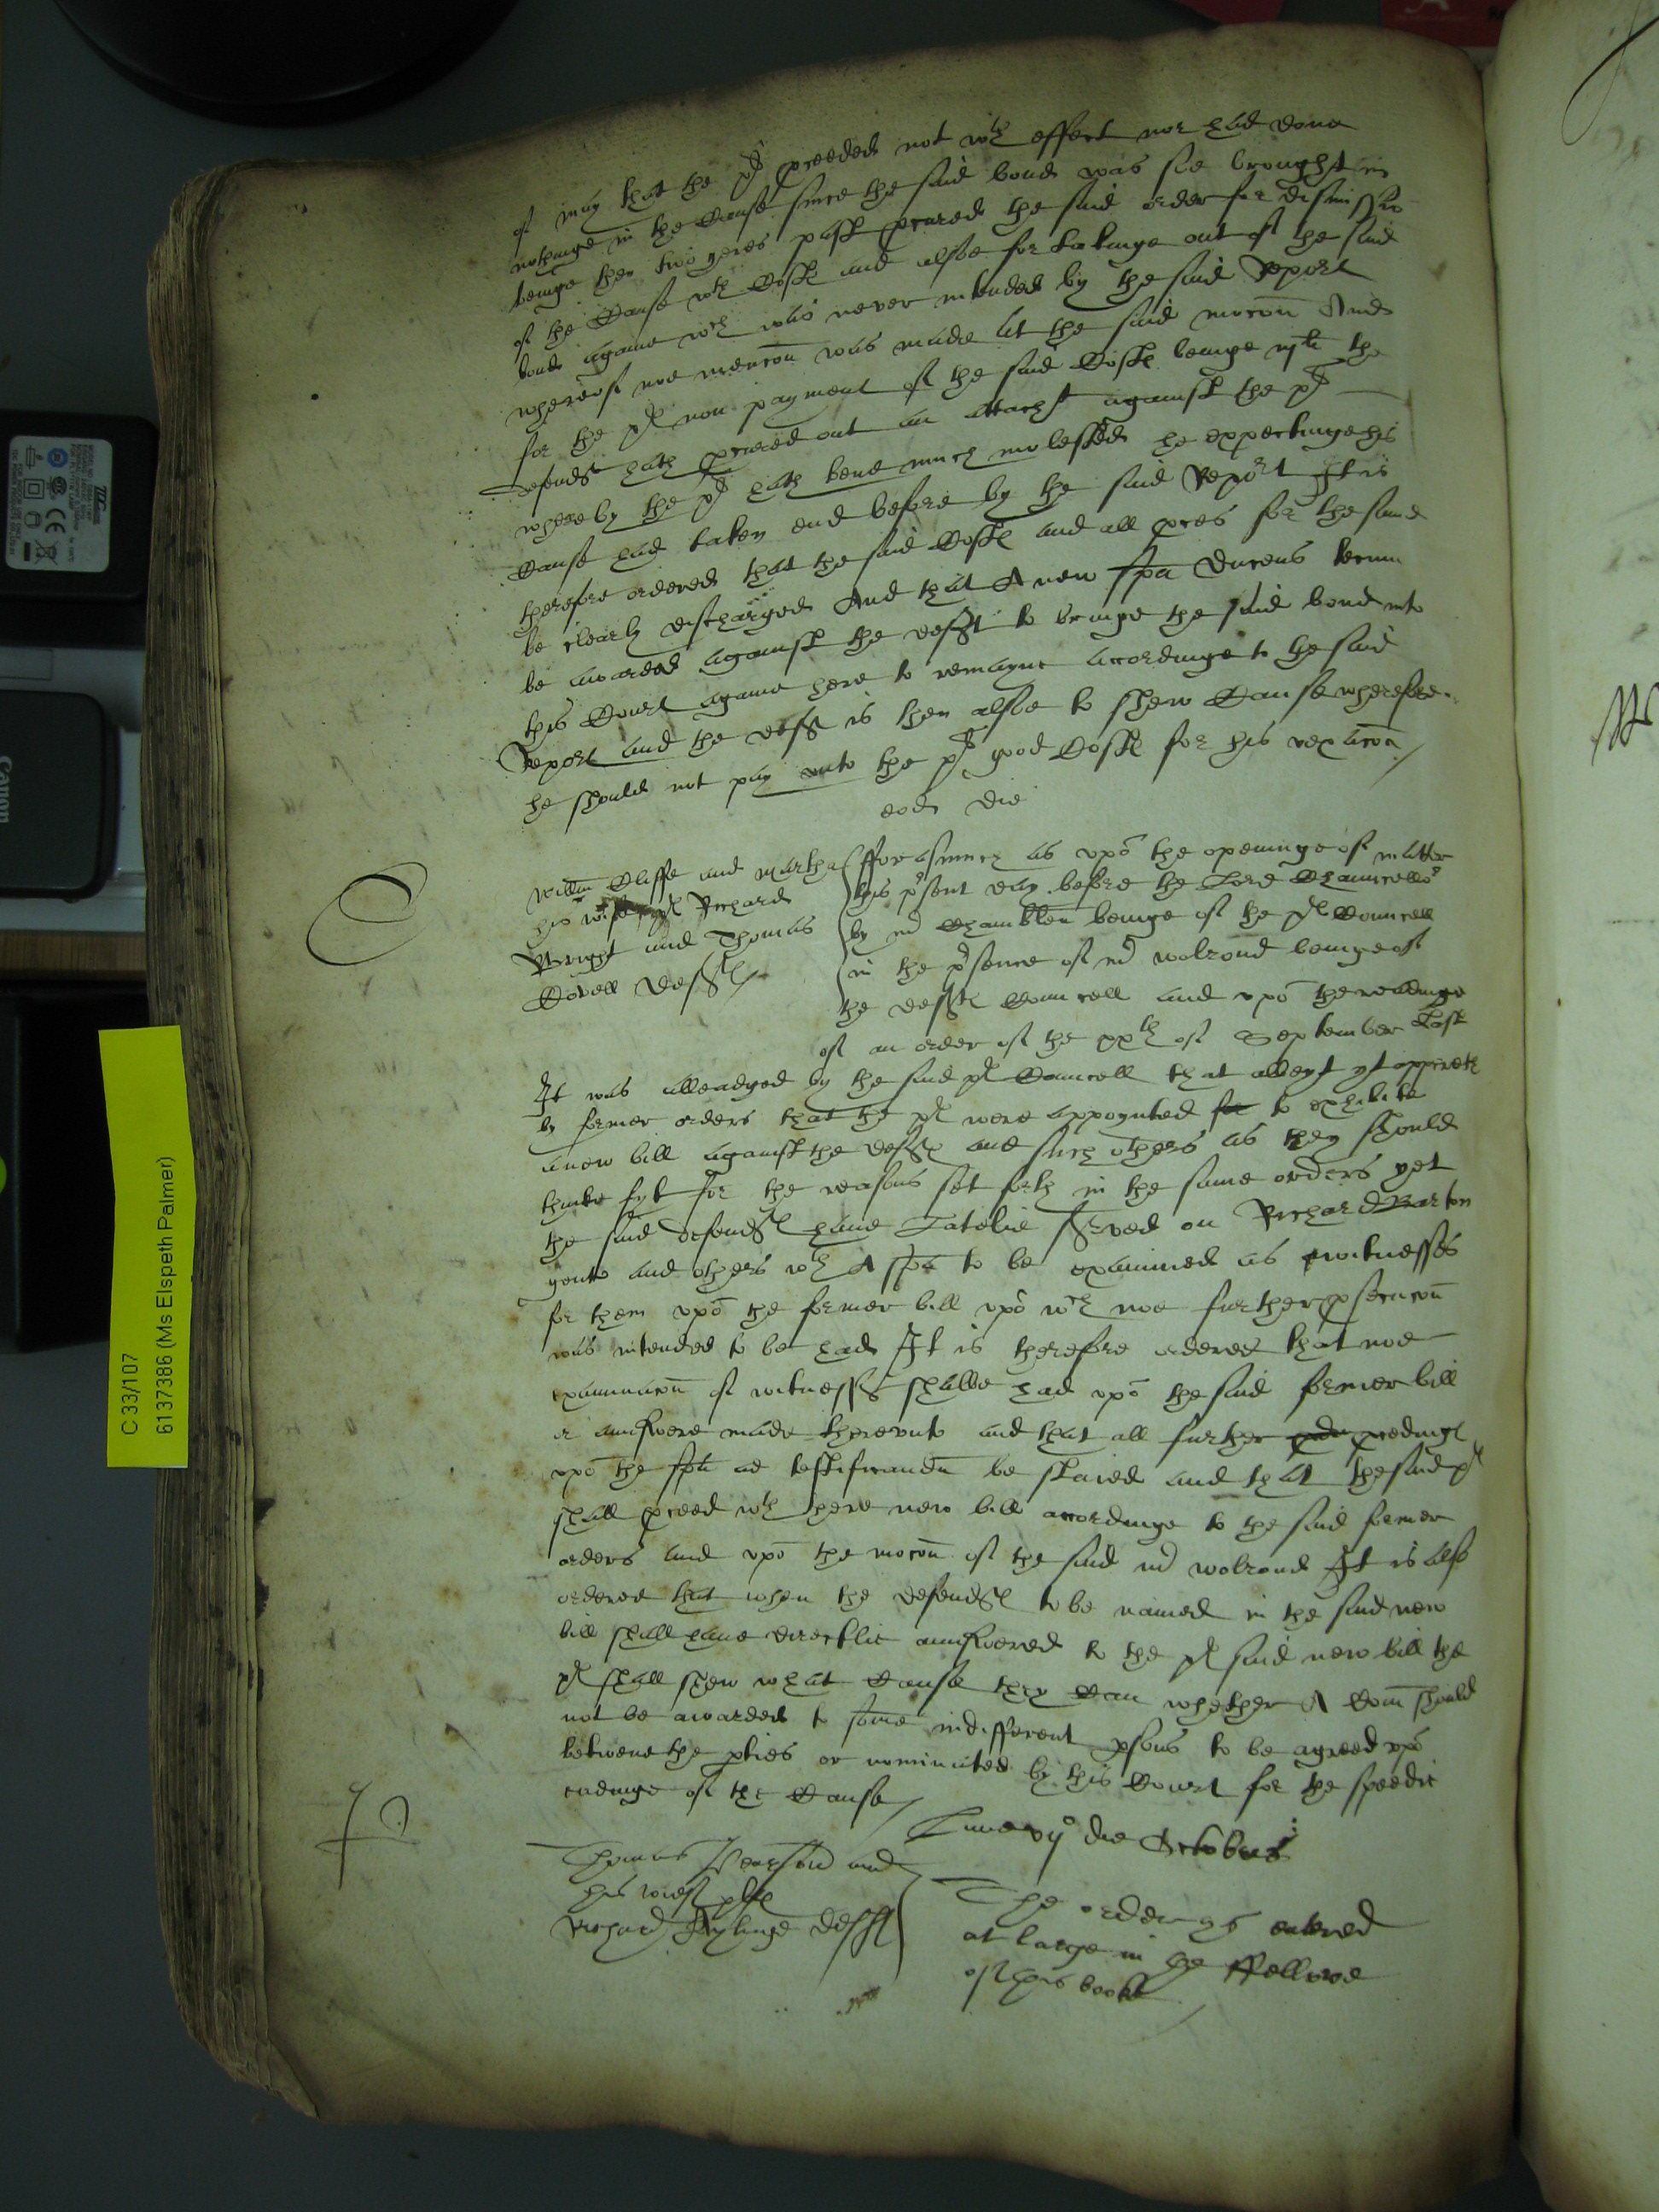 of may that the pl proceeded not wth effect nor had done
nothinge in the Cause since the said bond was soe brought in
beinge then two yeres past procured the said order for dismission
of the Cause wth Costs and alsoe for takinge out of the said
bond againe wch was never intended by the said Report
whereof noe mencon was made at the said mocon And
for the pl non payment of the said Costs beinge the
defendt hath procured out an attachmt against the pl
whereby the pl hath bene much molested he expectinge his
Cause had taken end before by the said Report It is
therefore ordered that the said Costs and all proces for the same
be clearly discharged And that A new spa Ducens tecum
be awarded against the deft to bringe the said bond into
this Court againe here to remayne accordinge to the said
Report and the deft is then alsoe to shew Cause wherefore
he should not pay unto the pl good Costs for his vexacon
eod die
Willm Cliffe and Martha
his wife pl Richard
Wright and Thomas
Covell defts
fforasmuch as upo the openinge of matter
this psent day before the Lord Chauncellor
by mr Chamblen beinge of the pl Councell
in the psence of mr Walrond beinge of
the defts Councell and upo the readinge
of an order of the xxth of September Last
It was alleadged by the said pl Councell that albeyt yt appereth
by former orders that the pl were appoynted for to exhibite
a new bill against the defts and such others as they should
thinke fyt for the reasons set forth in the same orders yet
the said defendts have Latelie served on Richard Barton
gent and others wth A spa to be examined as witnesses
for them upo the former bill upo wch noe further psecucon
was intended to be had It is therefore ordered that noe
examinacon of witnesses shalbe had upo the said former bill
or answere made thereunto and that all further procedings
upo the spa ad testificandu be staied and that the said pl
shall proceed wth there new bill accordinge to the said former
orders and upo the mocon of the said mr Walrond It is also
ordered that when the defendts to be named in the said new
bill shall have directlie answered to the pl said new bill the
pl shall shew what Cause they Can whether A Com should
not be awarded to some indifferent psons to be agreed upo
betwene the pties or nominated by this Court for the speedie
endinge of the Cause
Lune die Octobris
Thomas Pearson and
his wief plts
Richard defts
The order ys entered
at large in the ffellowe
of this booke
C 33/107
6137386 (Ms Elspeth Palmer)
Canon